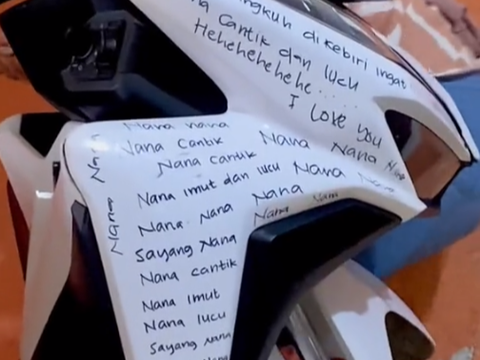 ngkuh dikebiri ingat
Cantik dan lucu
Hehehehehehe.....
I Love you
Nana
Nana nana
Nana Cantik
Nana
Nana Cantik
Nana imut dan lucu
Nana
Nana
Nana
Nana
Nana Nana
Nana
Sayang Nana
Nana cantik
Nana Imut
Nana lucu
Sayang Nana